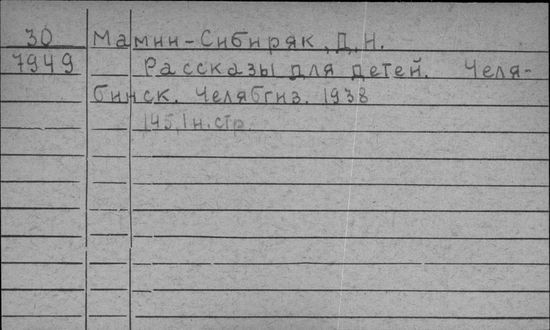 30 Мамин-Сибиряк, Д.Н.
7949 Рассказы для детей. Челя-
бинск. Челябгиз. 1938
145, 1 н. стр.